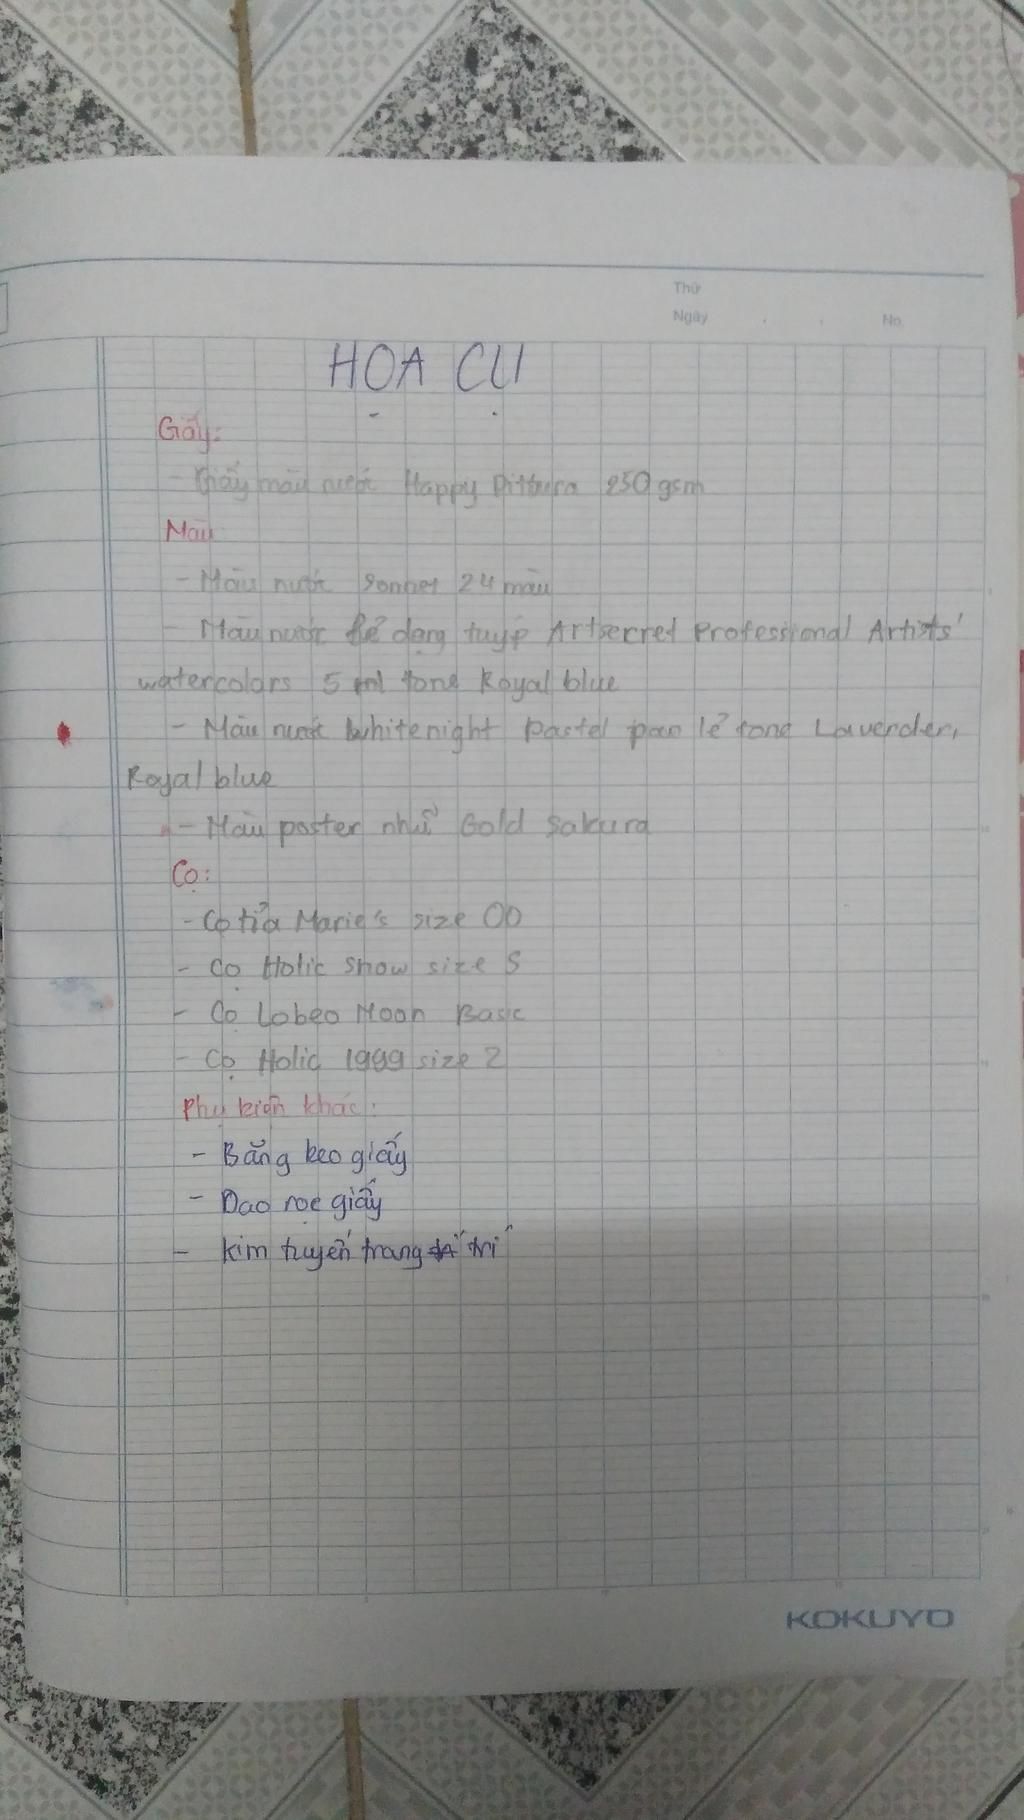 Thứ
Ngày . . No.
HỌA CỤ
Giấy:
- Giấy màu nước Happy Pittura 250 gsm
Màu
- Màu nước Sonnet 24 màu
- Màu nước lẻ dạng tuýp Artsecret Professional Artists'
watercolors 5 ml tone Royal blue
- Màu nước Whitenight Pastel pan lẻ tone Lavender,
Royal blue
- Màu poster nhũ Gold Sakura
Cọ:
- Cọ tỉa Marie's size 00
- Cọ Holic Snow size S
- Cọ Lobeo Moon Basic
- Cọ Holic 1999 size 2
Phụ kiện khác:
- Băng keo giấy
- Dao rọc giấy
- Kim tuyến trang trí
KOKUYO